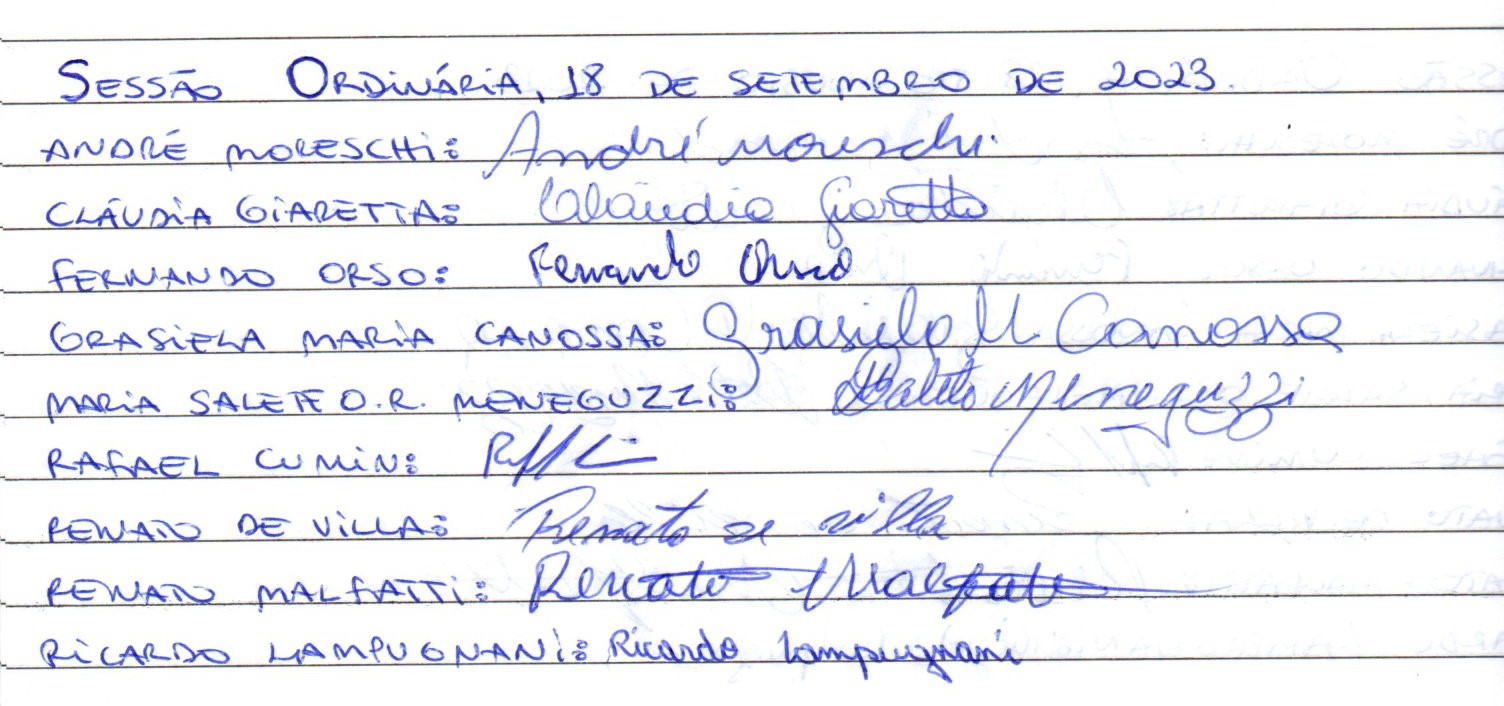 SESSÃO ORDINÁRIA, 18 DE SETEMBRO DE 2023.
ANDRÉ MORESCHI: André Moreschi.
CLÁUDIA GIARETTA: Claudia Giaretta
FERNANDO ORSO: Fernando Orso
GRASIELA MARIA CANOSSA: Grasiela M Canossa
MARIA SALETE O.R. MENEGUZZI: Salete Meneguzzi
RAFAEL CUMIN:
RENATO DE VILLA: Renato de villa
RENATO MALFATTI: Renato Malfatti
RICARDO LAMPUGNANI: Ricardo Lampugnani